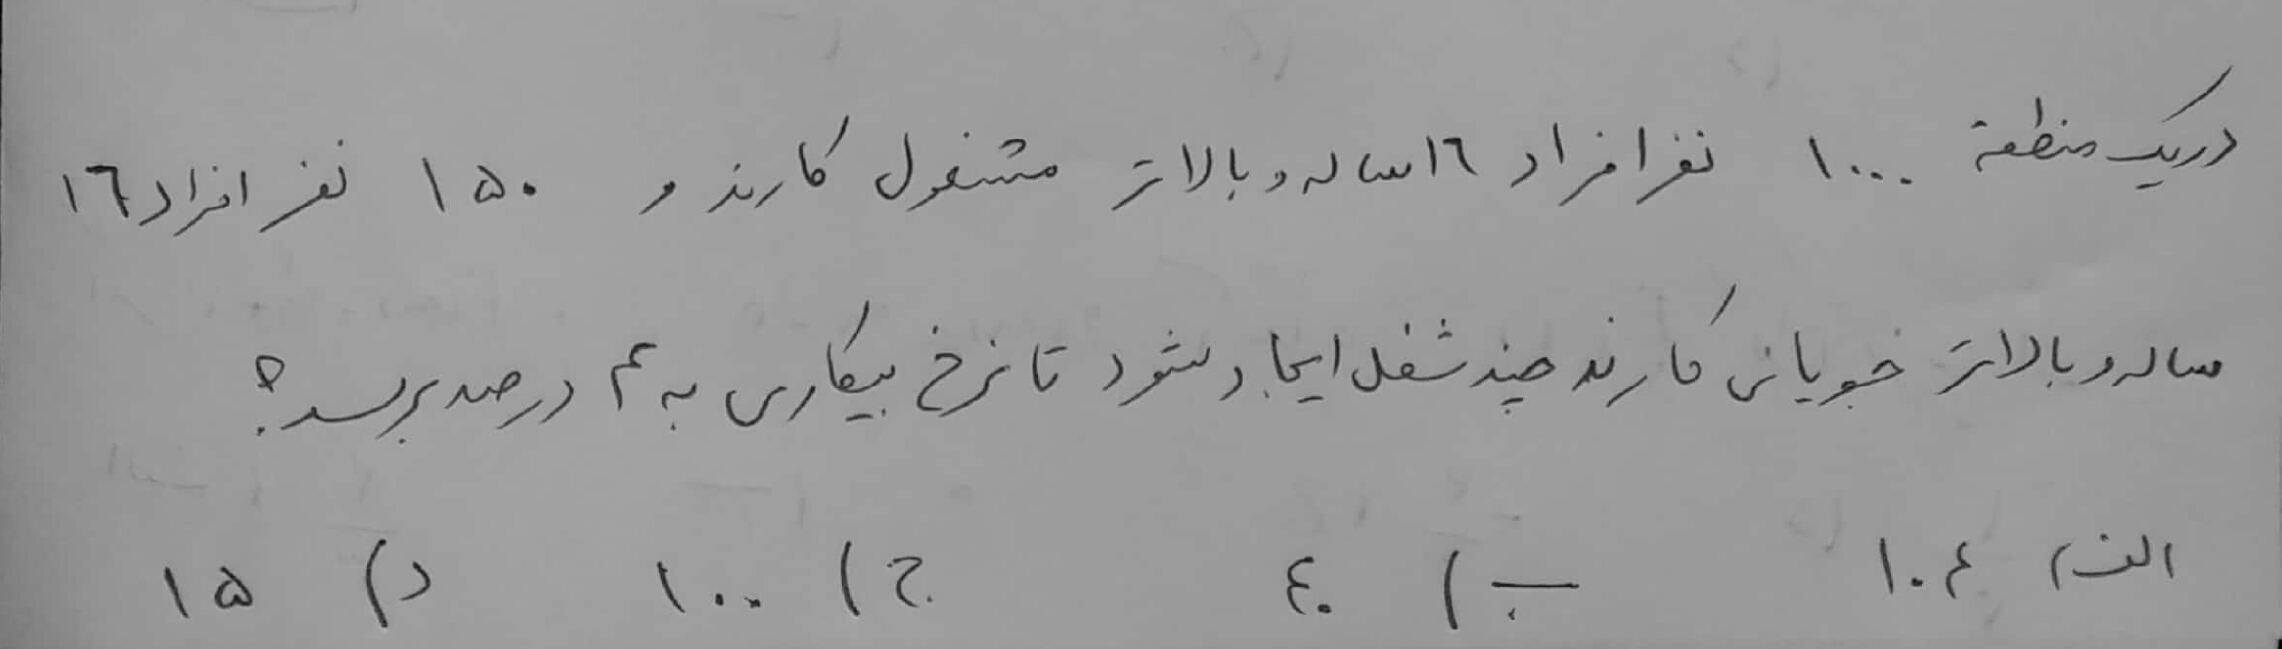 در یک منطقه ۱۰۰۰ نفر افراد ۱۶ ساله و بالاتر مشغول کارند و ۱۵۰ نفر افراد ۱۶
ساله و بالاتر جویای کارند چند شغل ایجاد شود تا نرخ بیکاری به ۴ درصد برسد؟
الف) ۱۰۴ ب) ۴۰ ج) ۱۰۰ د) ۱۵